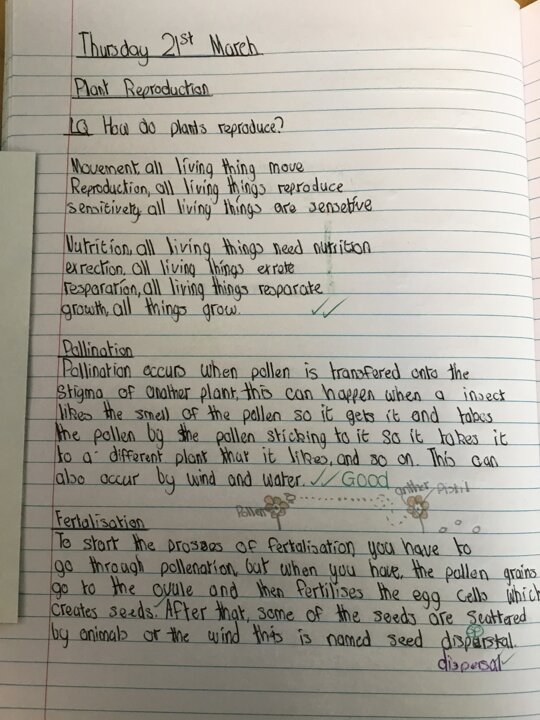 Thursday 21st March
Plant Reproduction
LQ How do plants reproduce?
Movement, all living thing move
Reproduction, all living things reproduce
sensitivety, all living things are sensetive
Nutrition, all living things need nutrition
exrection, all living things exrate
resparation, all living things resparate
growth, all things grow.
Pollination
Pollination occurs when pollen is transfered onto the
Stigma of another plant, this can happen when a insect
likes the smell of the pollen so it gets it and takes
the pollen by the pollen sticking to it so it takes it
to a different plant that it likes, and so on. This can
also occur by wind and water. GOOD
Pollen anther Pistil
Fertalisation
To start the prosses of fertalisation you have to
go through pollenation, but when you have, the pollen grains
go to the ovule and then fertilises the egg cells which
creates seeds. After that, some of the seeds are scattered
by animals or the wind this is named seed disperstal.
dispersal